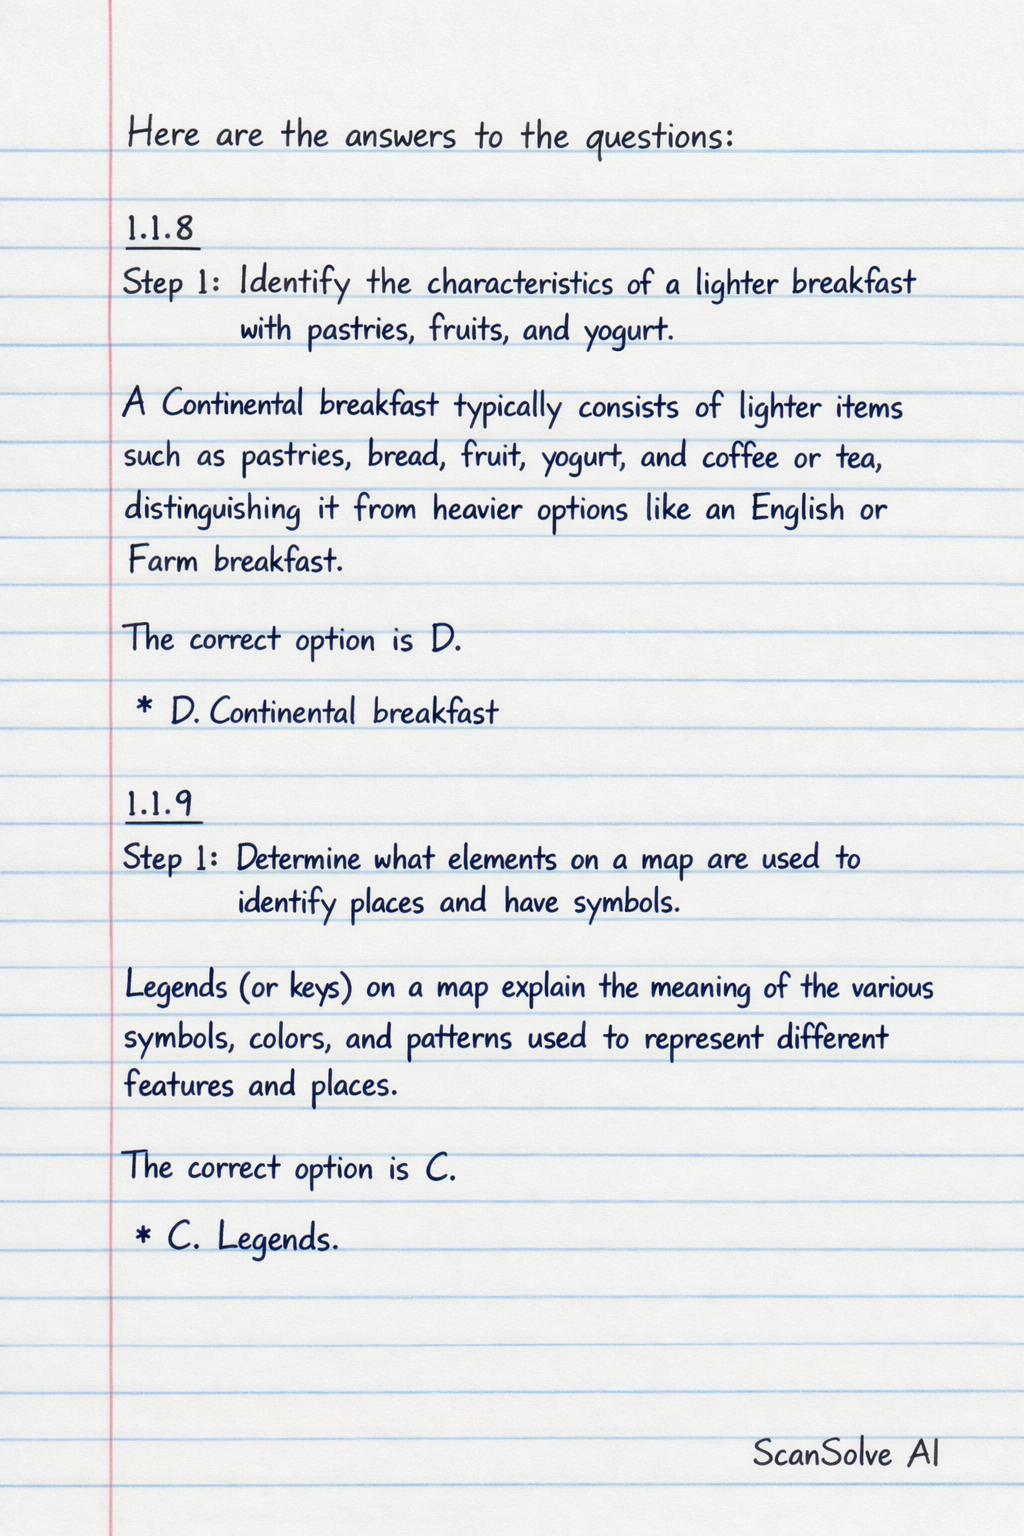 Here are the answers to the questions:
1.1.8
Step 1: Identify the characteristics of a lighter breakfast
with pastries, fruits, and yogurt.
A Continental breakfast typically consists of lighter items
such as pastries, bread, fruit, yogurt, and coffee or tea,
distinguishing it from heavier options like an English or
Farm breakfast.
The correct option is D.
* D. Continental breakfast
1.1.9
Step 1: Determine what elements on a map are used to
identify places and have symbols.
Legends (or keys) on a map explain the meaning of the various
symbols, colors, and patterns used to represent different
features and places.
The correct option is C.
* C. Legends.
ScanSolve AI